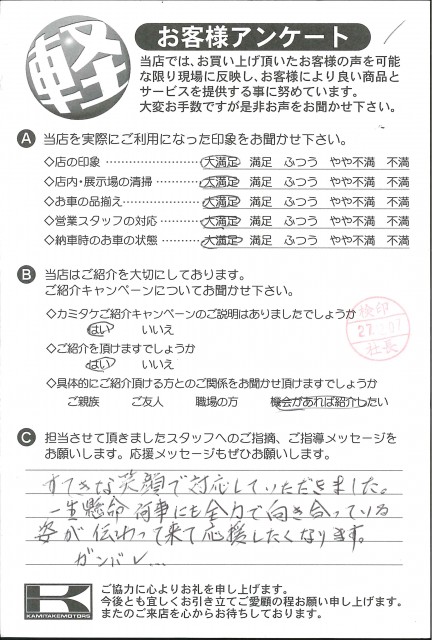 軽
お客様アンケート
当店では、お買い上げ頂いたお客様の声を可能
な限り現場に反映し、お客様により良い商品と
サービスを提供する事に努めています。
大変お手数ですが是非お声をお聞かせ下さい。
A 当店を実際にご利用になった印象をお聞かせ下さい。
◇店の印象 ………………… 大満足 満足 ふつう やや不満 不満
◇店内・展示場の清掃………… 大満足 満足 ふつう やや不満 不満
◇お車の品揃え……………… 大満足 満足 ふつう やや不満 不満
◇営業スタッフの対応 ……… 大満足 満足 ふつう やや不満 不満
◇納車時のお車の状態 ……… 大満足 満足 ふつう やや不満 不満
B 当店はご紹介を大切にしております。
ご紹介キャンペーンについてお聞かせ下さい。
◇カミタケご紹介キャンペーンのご説明はありましたでしょうか
はい いいえ
検印
社長
◇ご紹介を頂けますでしょうか
はい いいえ
◇具体的にご紹介頂ける方とのご関係をお聞かせ頂けますでしょうか
ご親族 ご友人 職場の方 機会があれば紹介したい
C 担当させて頂きましたスタッフへのご指摘、ご指導メッセージを
お願いします。応援メッセージもぜひお願いします。
すてきな笑顔で対応していただきました。
一生懸命 何事にも全力で向き合っている
姿が 伝わって来て応援したくなります。
ガンバレ…
K
KAMITAKEMOTORS
ご協力に心よりお礼を申し上げます。
今後とも宜しくお引き立てご愛顧の程お願い申し上げます。
またのご来店を心からお待ちしております。